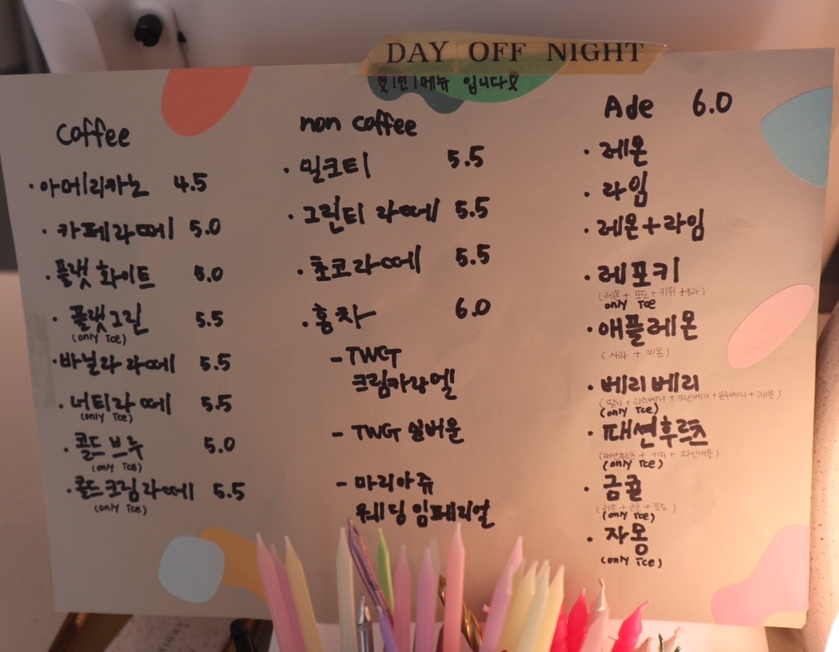 DAY OFF NIGHT
1인 1메뉴 입니다
Coffee
· 아메리카노 4.5
· 카페라떼 5.0
· 플랫 화이트 5.0
· 플랫그린 5.5
(only Ice)
· 바닐라 라떼 5.5
· 너티라떼 5.5
(only Ice)
· 콜드 브루 5.0
(only Ice)
· 콜드크림라떼 5.5
(only Ice)
non coffee
· 밀크티 5.5
· 그린티 라떼 5.5
· 초코라떼 5.5
· 홍차 6.0
- TWG
크림카라멜
- TWG 실버문
- 마리아쥬
웨딩 임페리얼
Ade 6.0
· 레몬
· 라임
· 레몬+라임
· 레포키
(레몬 + 포도 + 키위
only Ice
· 애플레몬
(사과 + 레몬)
· 베리베리
(only Ice)
· 패션후르츠
(패션후르츠 + 키위 + 파인애플)
(only Ice)
· 금귤
(only Ice)
· 자몽
(only Ice)